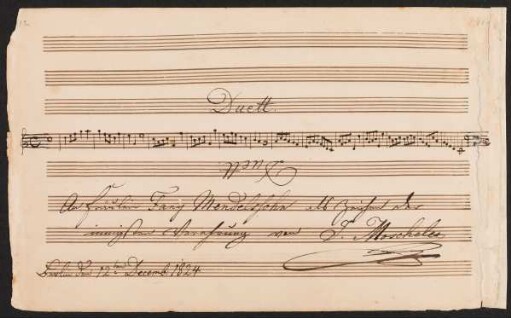 Duett
Duett
An Fräulein Fany Mendelssohn als Zeichen der
innigsten Verehrung von I. Moscheles
Berlin den 12ten Decemb 1824